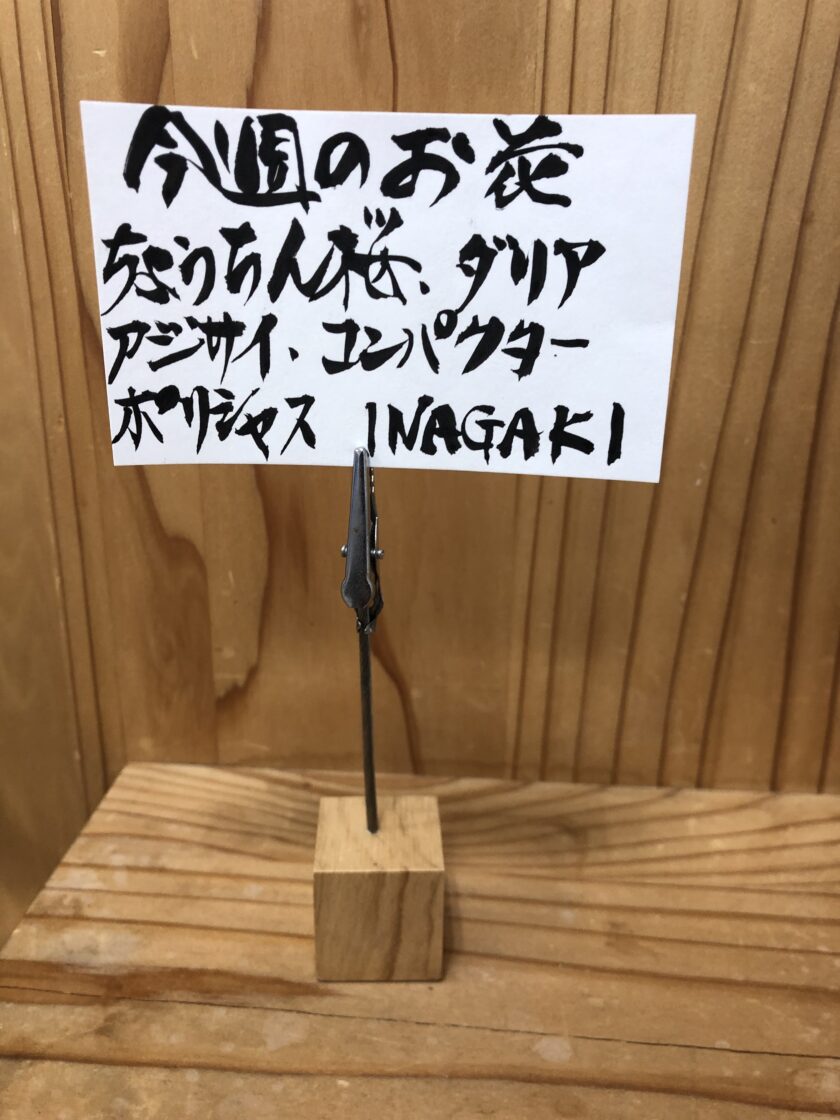 今週のお花
ちょうちん桜、ダリア
アジサイ、コンパクター
ポリシャス INAGAKI